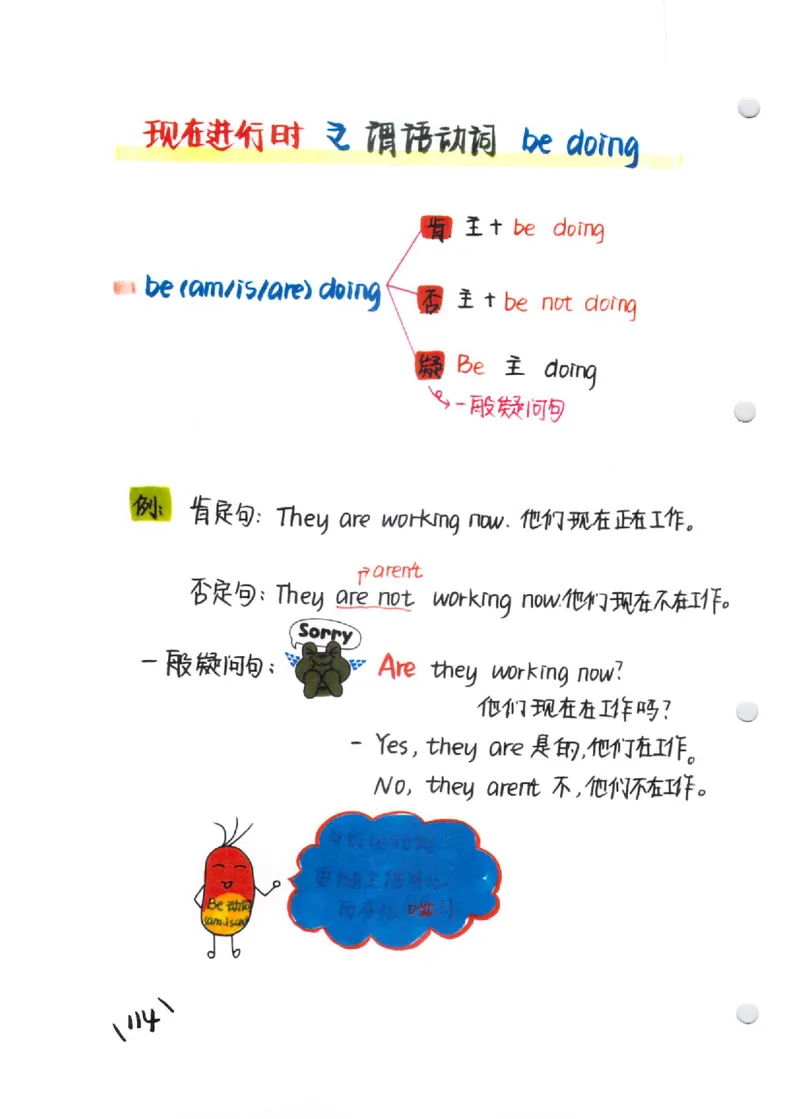 现在进行时 之 谓语动词 be doing
肯 主+ be doing
be (am/is/are) doing
否 主+ be not doing
疑 Be 主 doing
一般疑问句
例:
肯定句: They are working now. 他们现在正在工作。
arent
否定句: They are not working now.他们现在不在工作。
Sorry
一般疑问句: Are they working now?
他们现在在工作吗?
- Yes, they are 是的,他们在工作。
No, they arent 不,他们不在工作。
Be 动词
(am.is.are)
114